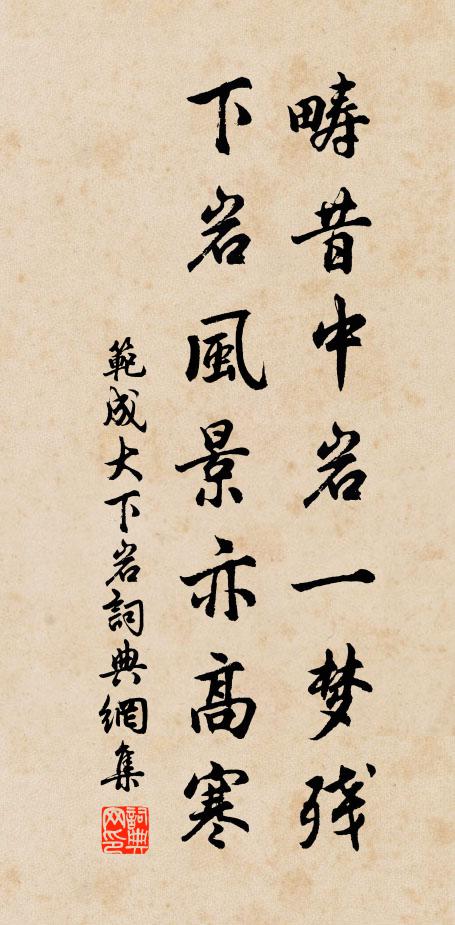 畴昔中岩一梦残
下岩風景亦高寒
範成大下岩詞典網集
詞典网印